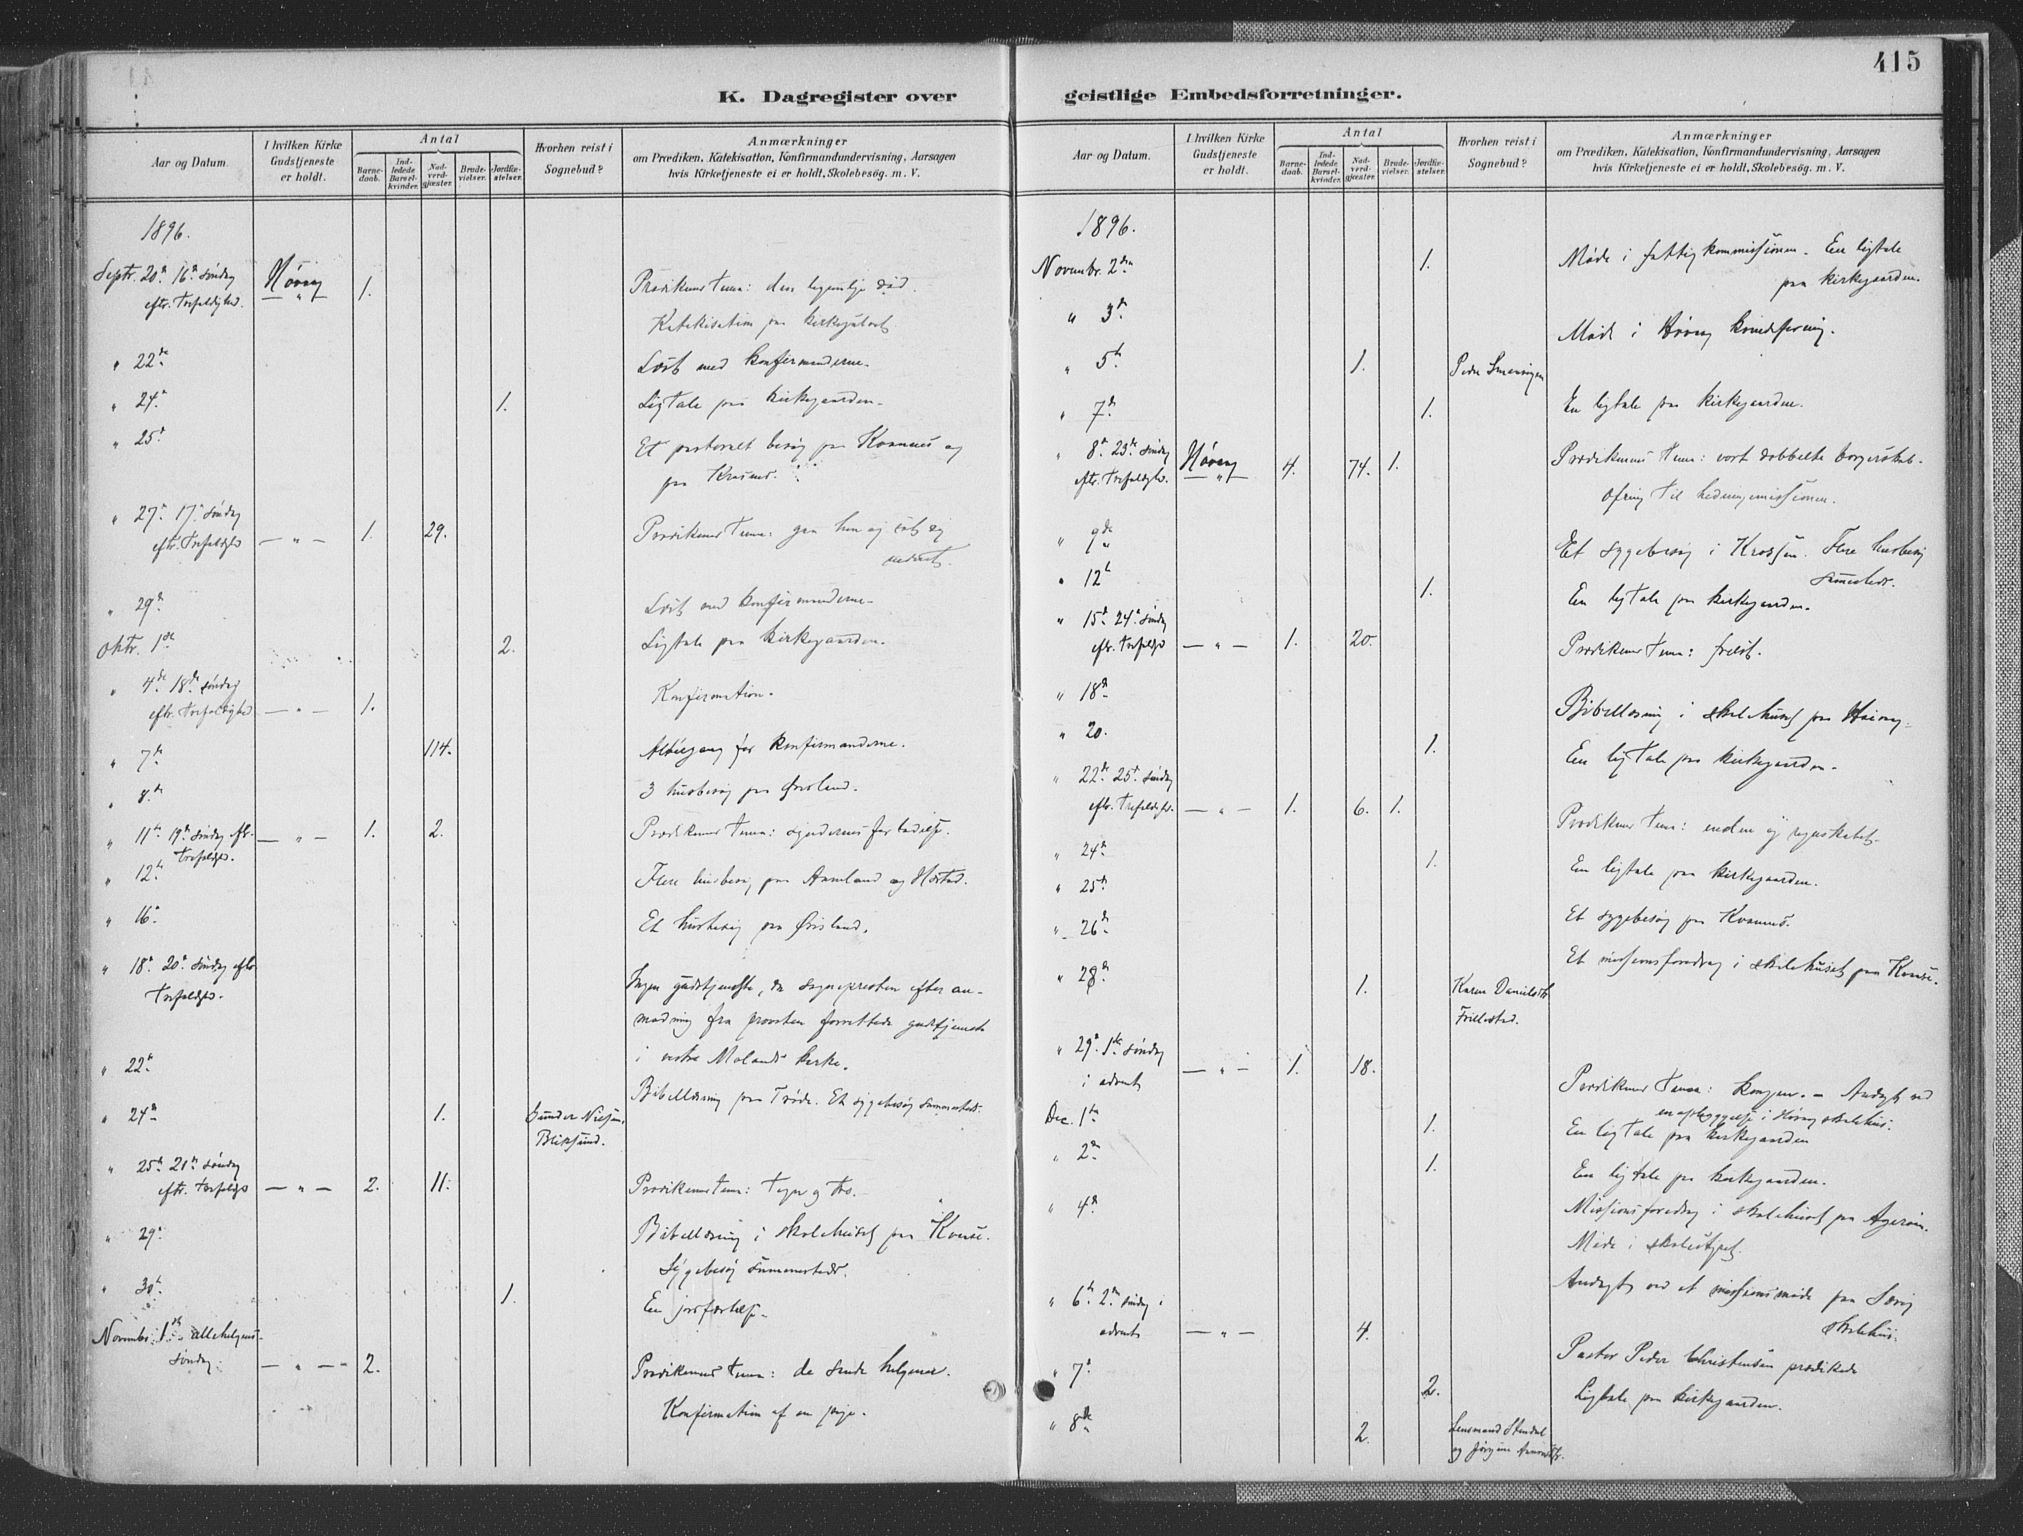 415
K. Dagregister over geistlige Embedsforretninger.
Aar og Datum.
I hvilken Kirke Gudstjeneste er holdt.
Antal
Barnedaab.
Indledede Barselkvinder.
Nadverdgjæster.
Brudevielser.
Jordfæstelser.
Hvorhen reist i Sognebud?
Anmærkninger
om Prædiken, Katekisation, Konfirmandundervisning, Aarsagen
hvis Kirketjeneste ei er holdt, Skolebesøg. m. V.
1896.
Septr. 20de 16de søndag Høvåg 1. Prædikenens tema: den legemlige død.
eftr. Trefoldighed — " — Katekisation paa kirkegulvet
" 22de Læst med konfirmanderne.
" 24. 1. Ligtale paa kirkegaarden.
" 25. Et pastoralt besøg paa Kvannes og
paa
" 27. 17. søndag
eftr. Trefoldighd — " — 1. 29. Prædikenens tema: gaa hen og sæt dig
nederst.
" 29. Læst med konfirmanderne.
Oktr. 1ste 2. Ligtale paa kirkegaarden.
" 4de 18de søndag Konfirmation.
eftr. Trefoldighed — " — 1.
" 7de 114. Altergang for konfirmanderne.
" 8de 3 husbesøg paa Øvisland.
" 11te 19de søndag eftr. — " — 1. 2. Prædikenens tema: syndernes forladelse.
Trefoldighd.
" 12te Flere husbesøg paa Aamland og Hæstad.
" 16. Et husbesøg paa Øvisland.
" 18. 20. søndag eftr. Ingen gudstjeneste, da sognepresten efter an-
Trefoldighd. modning fra provsten forrettede gudstjeneste
i vestre Molands kirke.
" 22. Bibellæsning paa Trøde. Et sygebesøg sammesteds.
" 24de 1. Gunder Nielsen,
Bliksund.
" 25. 21de søndag
eftr. Trefoldighd — " — 2. 11. Prædikenens tema: Tegn og tro.
" 29. Bibellæsning i skolehuset paa Kvaase.
Sygebesøg sammesteds.
" 30. 1. En jordfæstelse.
Novembr. 1ste - allehelgens-
søndag. — " — 2. Prædikenens tema: de sande helgener.
Konfirmation af en pige.
Aar og Datum.
I hvilken Kirke Gudstjeneste er holdt.
Antal
Barnedaab.
Indledede Barselkvinder.
Nadverdgjæster.
Brudevielser.
Jordfæstelser.
Hvorhen reist i Sognebud?
Anmærkninger
om Prædiken, Katekisation, Konfirmandundervisning, Aarsagen
hvis Kirketjeneste ei er holdt, Skolebesøg. m. V.
1896.
Novembr. 2den 1. Møde i fattigkommissionen. En ligtale
paa kirkegaarden.
" 3de Møde i Høvåg kvindeforening.
" 5te 1. Peder
" 7de 1. En ligtale paa kirkegaarden.
" 8de 23de søndag Høvåg 4. 74. 1. Prædikenens tema: vort dobbelte borgerskab.
eftr. Trefoldighd. — " — Ofring til hedningemissionen.
" 9de Et sygebesøg i Krossen. Flere husbesøg
sammesteds.
" 12te 1. En ligtale paa kirkegaarden.
" 15de 24de søndag
eftr. Trefoldighd — " — 1. 20. Prædikenens tema: frelst.
" 18de Bibellæsning i skolehuset paa Høvåg.
" 20. 1. En ligtale paa kirkegaarden.
" 22de 25. søndag
eftr. Trefoldighd. — " — 1. 6. 1. Prædikenens tema: enden og regnskabet.
" 24de 1. En ligtale paa kirkegaarden.
" 25de Et sygebesøg paa Kvannes.
" 26de Et missionsforedrag i skolehuset paa Kvaase.
" 28de 1. Karen Danielsdtr.
Frillestad.
" 29de 1ste søndag
i advent — " — 1. 18. Prædikenens tema: kongen. - Andagt ved
en oplæggelse i Høvåg skolehus.
Dec. 1ste 1. En ligtale paa kirkegaarden
" 2den 1. En ligtale paa kirkegaarden.
" 4de Missionsforedrag i skolehuset paa Agerøen.
Møde i skolestyret.
" 6te 2den søndag i Andagt ved et missionsmøde paa
advent — " — 4. skolehus.
Pastor Peder Christensen prædikede
" 7de 2. Ligtale paa kirkegaarden.
" 8de 2. Lensmand Stendal
og Jørgine